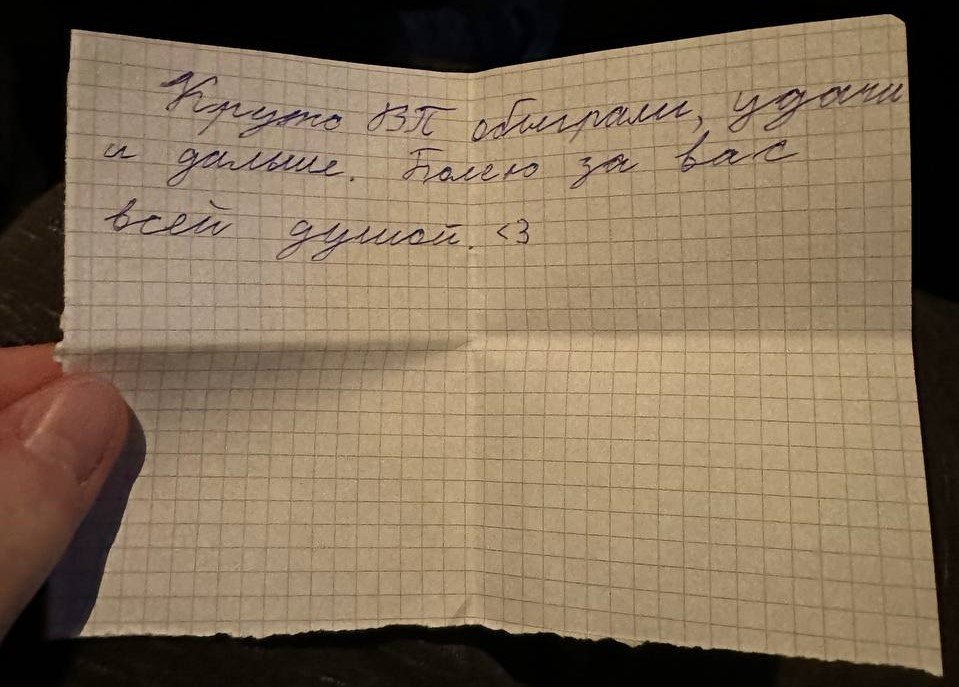 Круто ВП обыграли, удачи
и дальше. Болею за вас
всей душой. <3